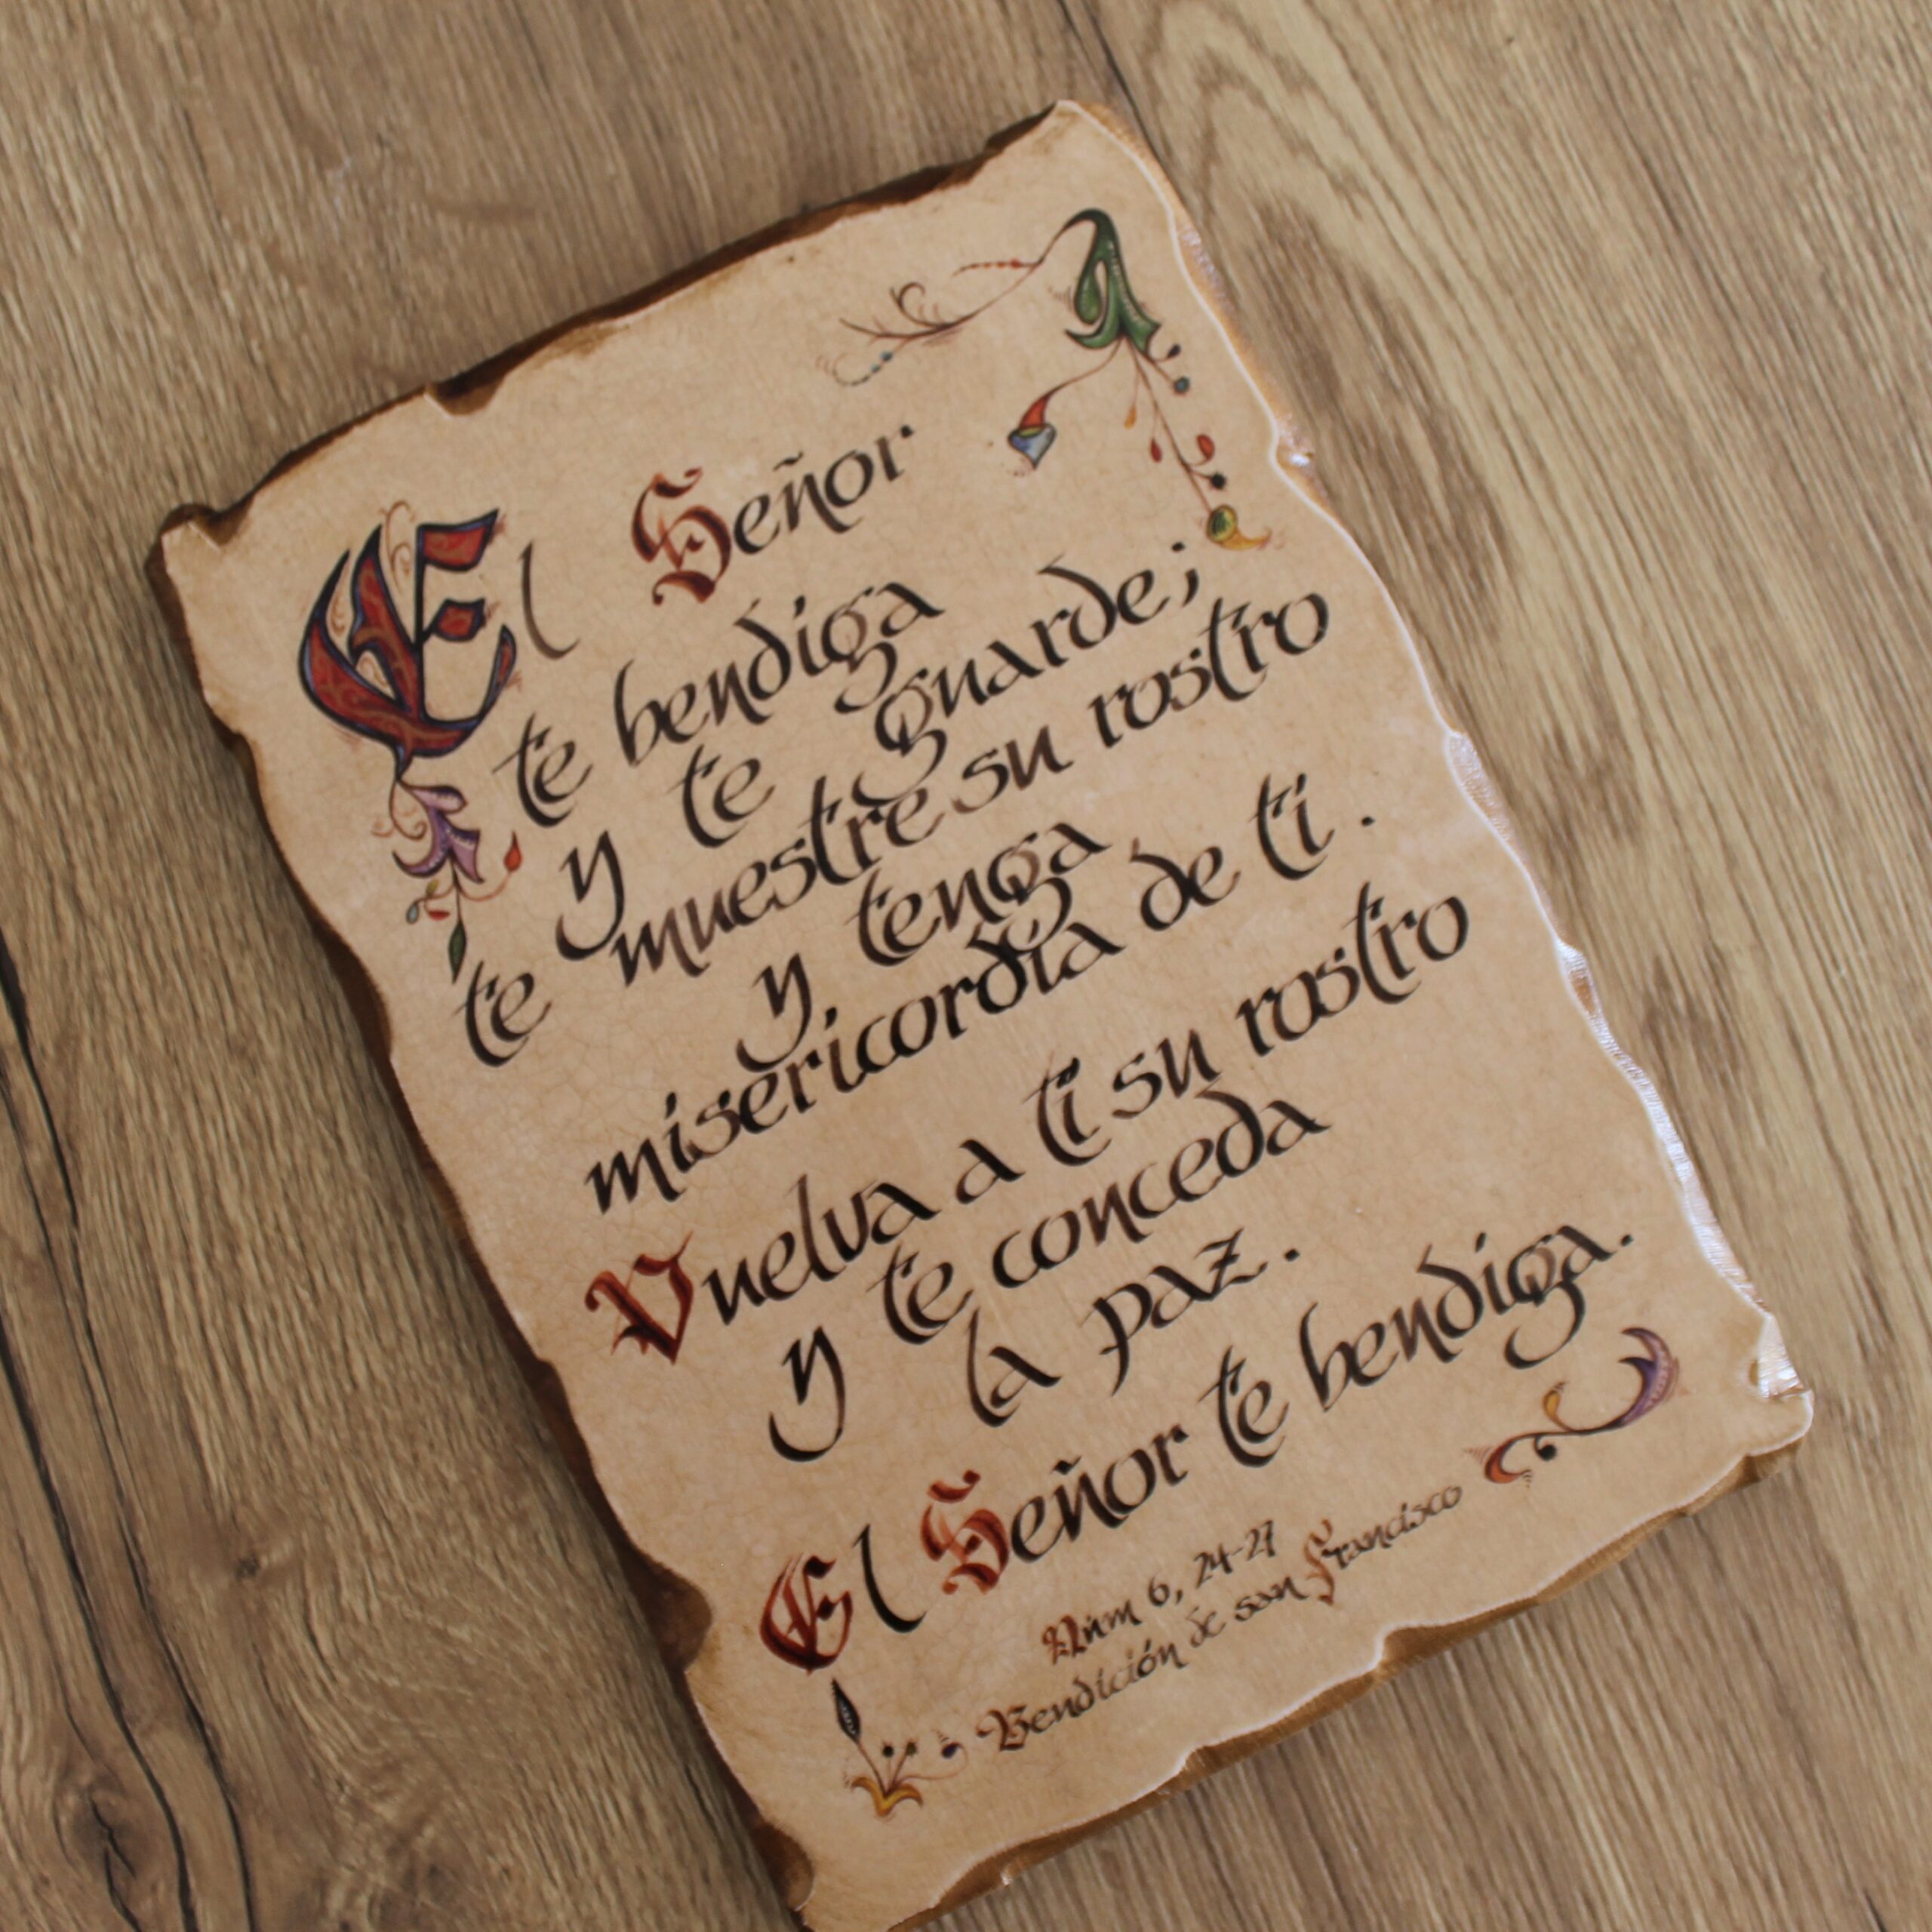 El Señor
te bendiga
y te guarde;
te muestre su rostro
y tenga
misericordia de ti.
Vuelva a ti su rostro
y te conceda
la paz.
El Señor te bendiga.
Núm 6, 24-27
Bendición de san Francisco